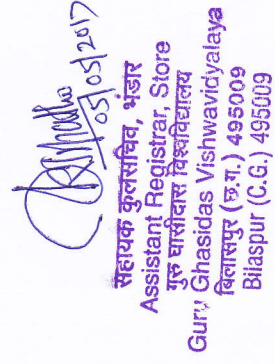 05/05/2017
सहायक कुलसचिव, भंडार
Assistant Registrar, Store
गुरु घासीदास विश्वविद्यालय
Guru Ghasidas Vishwavidyalaya
बिलासपुर (छ.ग.) 495009
Bilaspur (C.G.) 495009